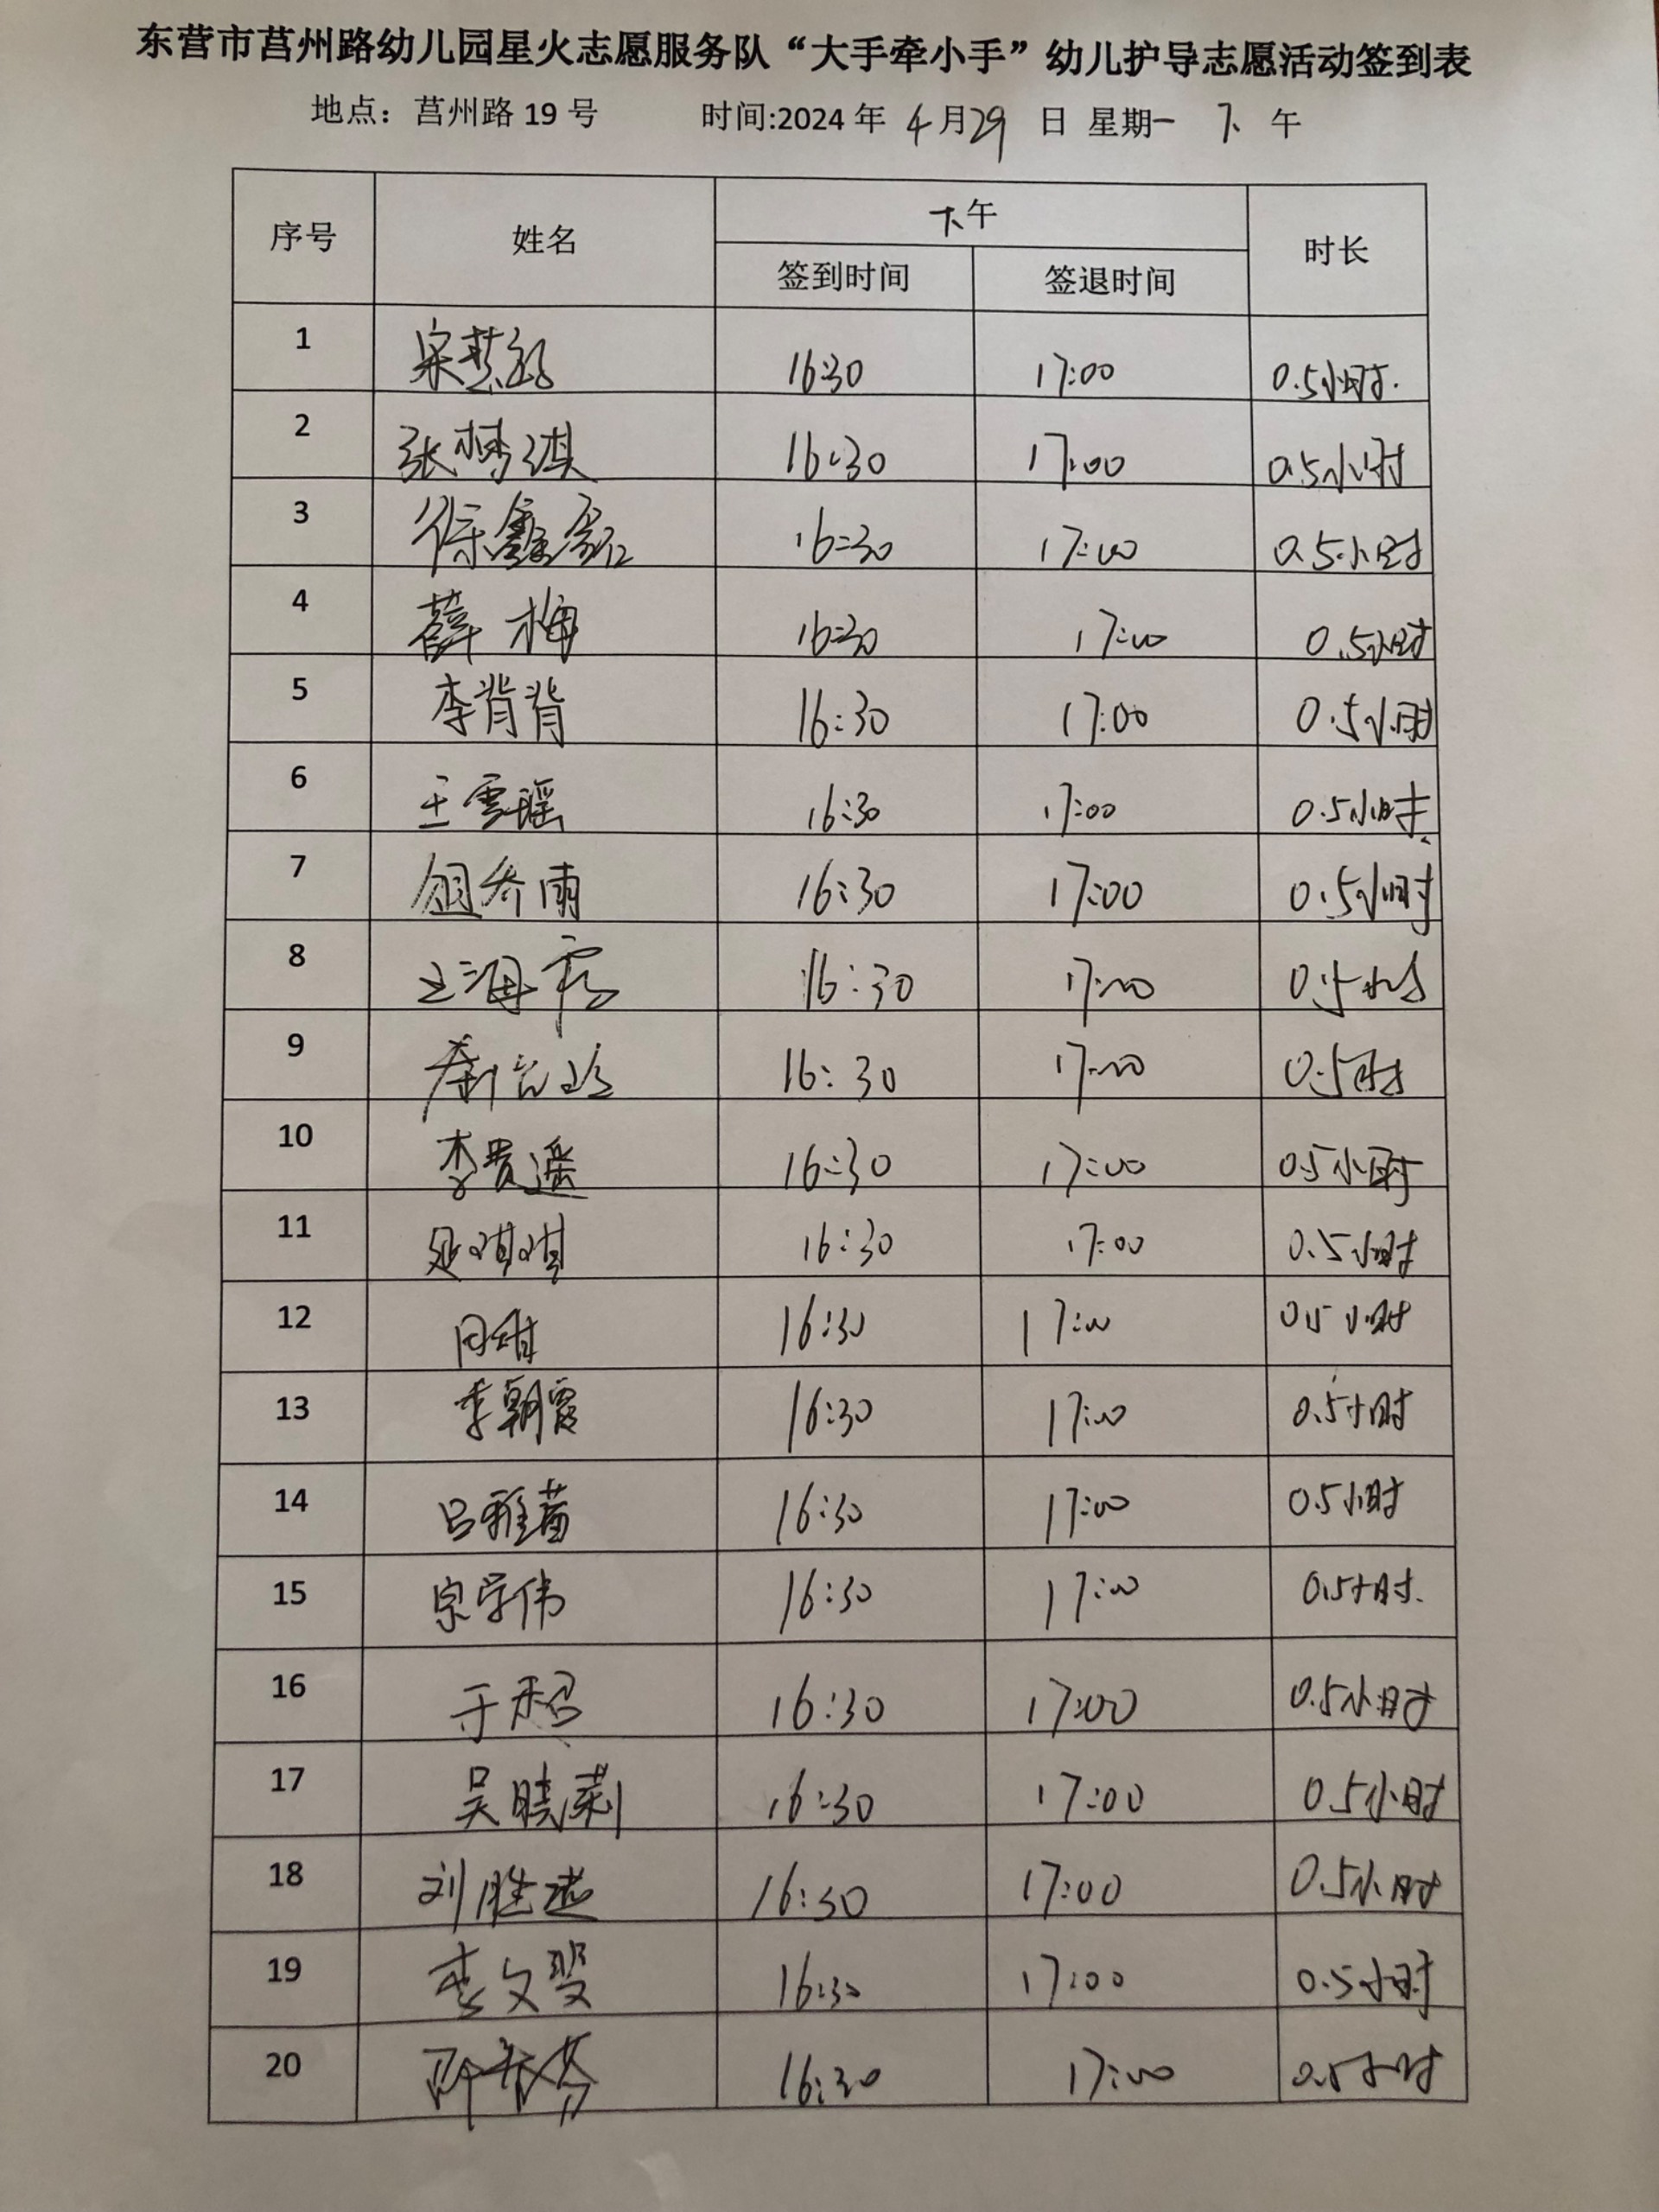 东营市莒州路幼儿园星火志愿服务队“大手牵小手”幼儿护导志愿活动签到表
地点：莒州路 19 号 时间:2024 年 4 月 29 日 星期一 下 午
序号 姓名 下午 时长
签到时间 签退时间
1 宋慧 16:30 17:00 0.5小时.
2 张梦琪 16:30 17:00 0.5小时
3 徐鑫 16:30 17:00 0.5小时
4 薛梅 16:30 17:00 0.5小时
5 李背背 16:30 17:00 0.5小时
6 王雪瑶 16:30 17:00 0.5小时
7 雨 16:30 17:00 0.5小时
8 王海霞 16:30 17:00 0.5小时
9 16:30 17:00 0.5时
10 李贵遥 16:30 17:00 0.5小时
11 琪琪 16:30 17:00 0.5小时
12 16:30 17:00 0.5小时
13 李朝霞 16:30 17:00 0.5小时
14 吕雅茜 16:30 17:00 0.5小时
15 宗学伟 16:30 17:00 0.5小时.
16 于 16:30 17:00 0.5小时
17 吴晓莉 16:30 17:00 0.5小时
18 刘胜 16:30 17:00 0.5小时
19 李文斐 16:30 17:00 0.5小时
20 16:30 17:00 0.5小时